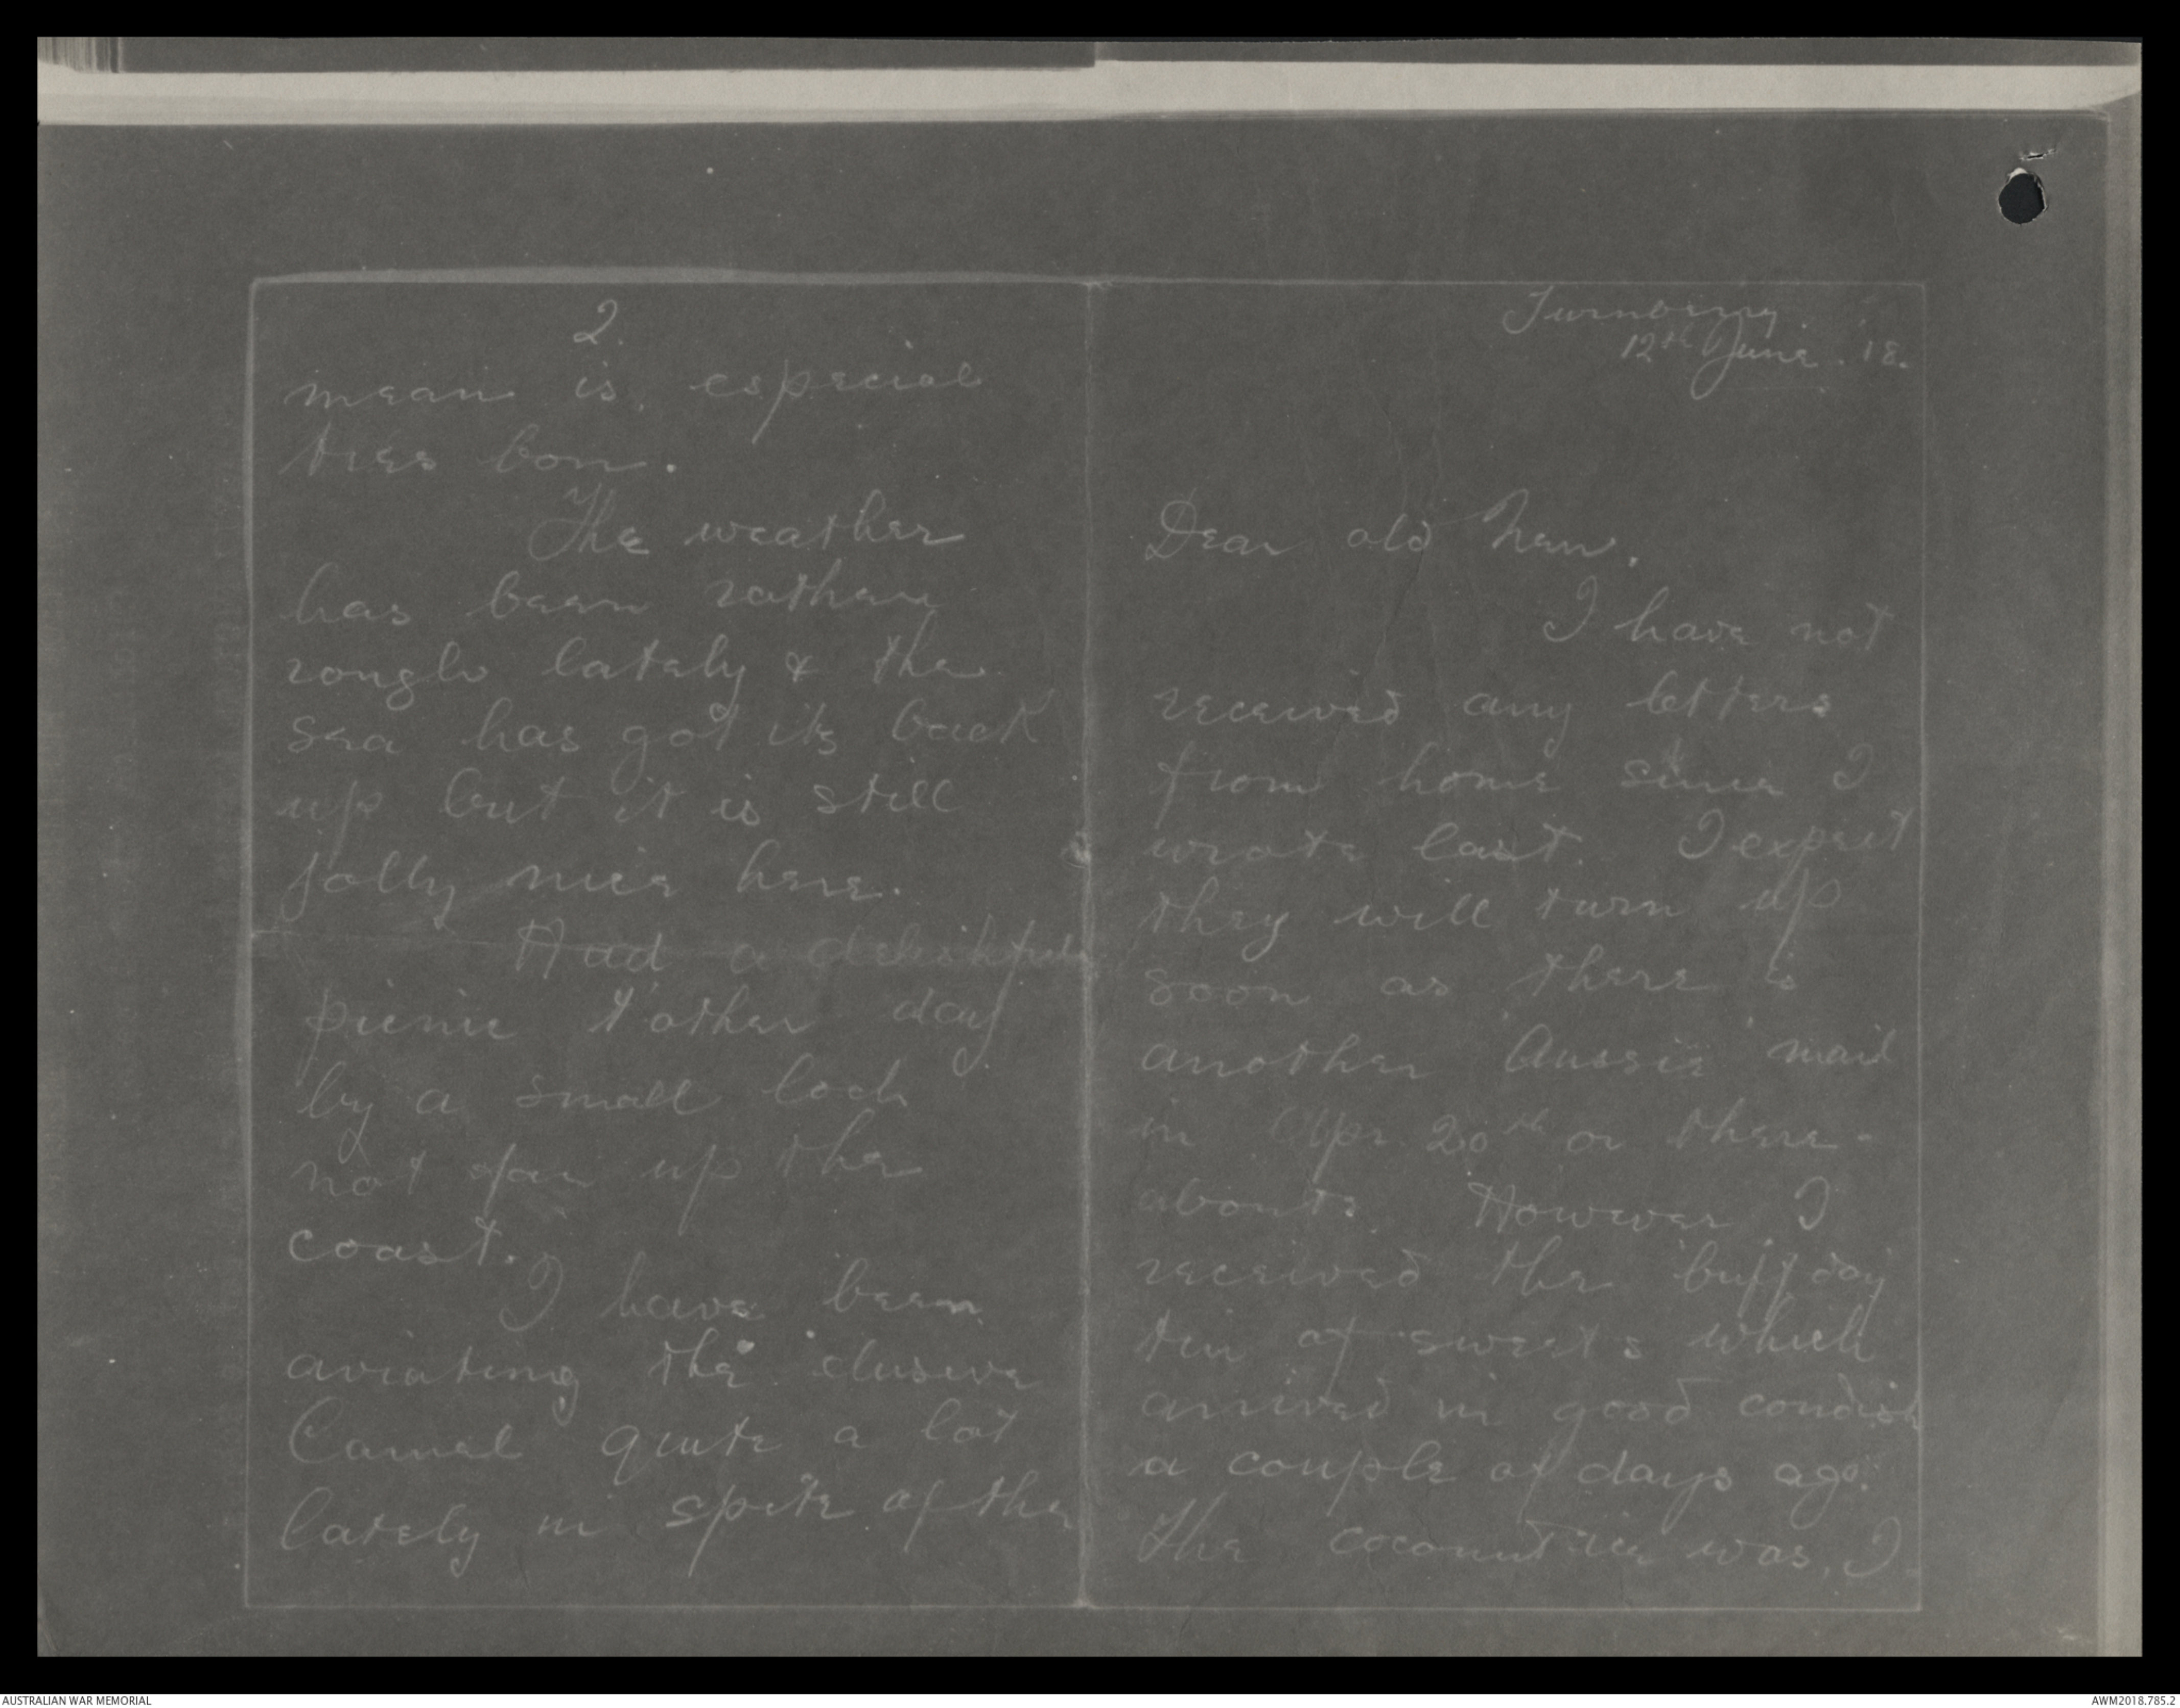 Turnberry.
12th June. '18.
Dear old
I have not
received any letters
from home since I
wrote last. I expect
they will turn up
soon as there is
another Aussie mail
in Apr 20th or there-
abouts. However I
received the buffday
tin of sweets which
arrived in good condish
a couple of days ago.
The cocoanut ice was, I
2.
mean is, especial
tres bon.
The weather
has been rather
rough lately & the
sea has got its back
up but it is still
jolly nice here.
Had a delightful
picnic t'other day
by a small loch
not far up the
coast.
I have been
aviating the elusive
Camel quite a lot
lately in spite of the
AUSTRALIAN WAR MEMORIAL
AWM2018.785.2